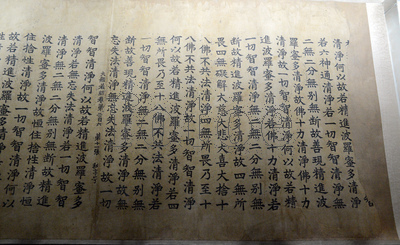 清淨何以故若精進波羅蜜多清淨
若六神通清淨若一切智智清淨無
二無二分無別無斷故善現精進波
羅蜜多清淨故佛十力清淨佛十力
清淨故一切智智清淨何以故若精
進波羅蜜多清淨若佛十力清淨若
一切智智清淨無二無二分無別無
斷故精進波羅蜜多清淨故四無所
畏四無礙解大慈大悲大喜大捨十
八佛不共法清淨四無所畏乃至十
八佛不共法清淨故一切智智清淨
何以故若精進波羅蜜多清淨若四
無所畏乃至十八佛不共法清淨若
一切智智清淨無二無二分無別無
斷故善現精進波羅蜜多清淨故無
忘失法清淨無忘失法清淨故一切
智智清淨何以故若精進波羅蜜多
清淨若無忘失法清淨若一切智智
清淨無二無二分無別無斷故精進
波羅蜜多清淨故恒住捨性清淨恒
住捨性清淨故一切智智清淨何以
故若精進波羅蜜多清淨